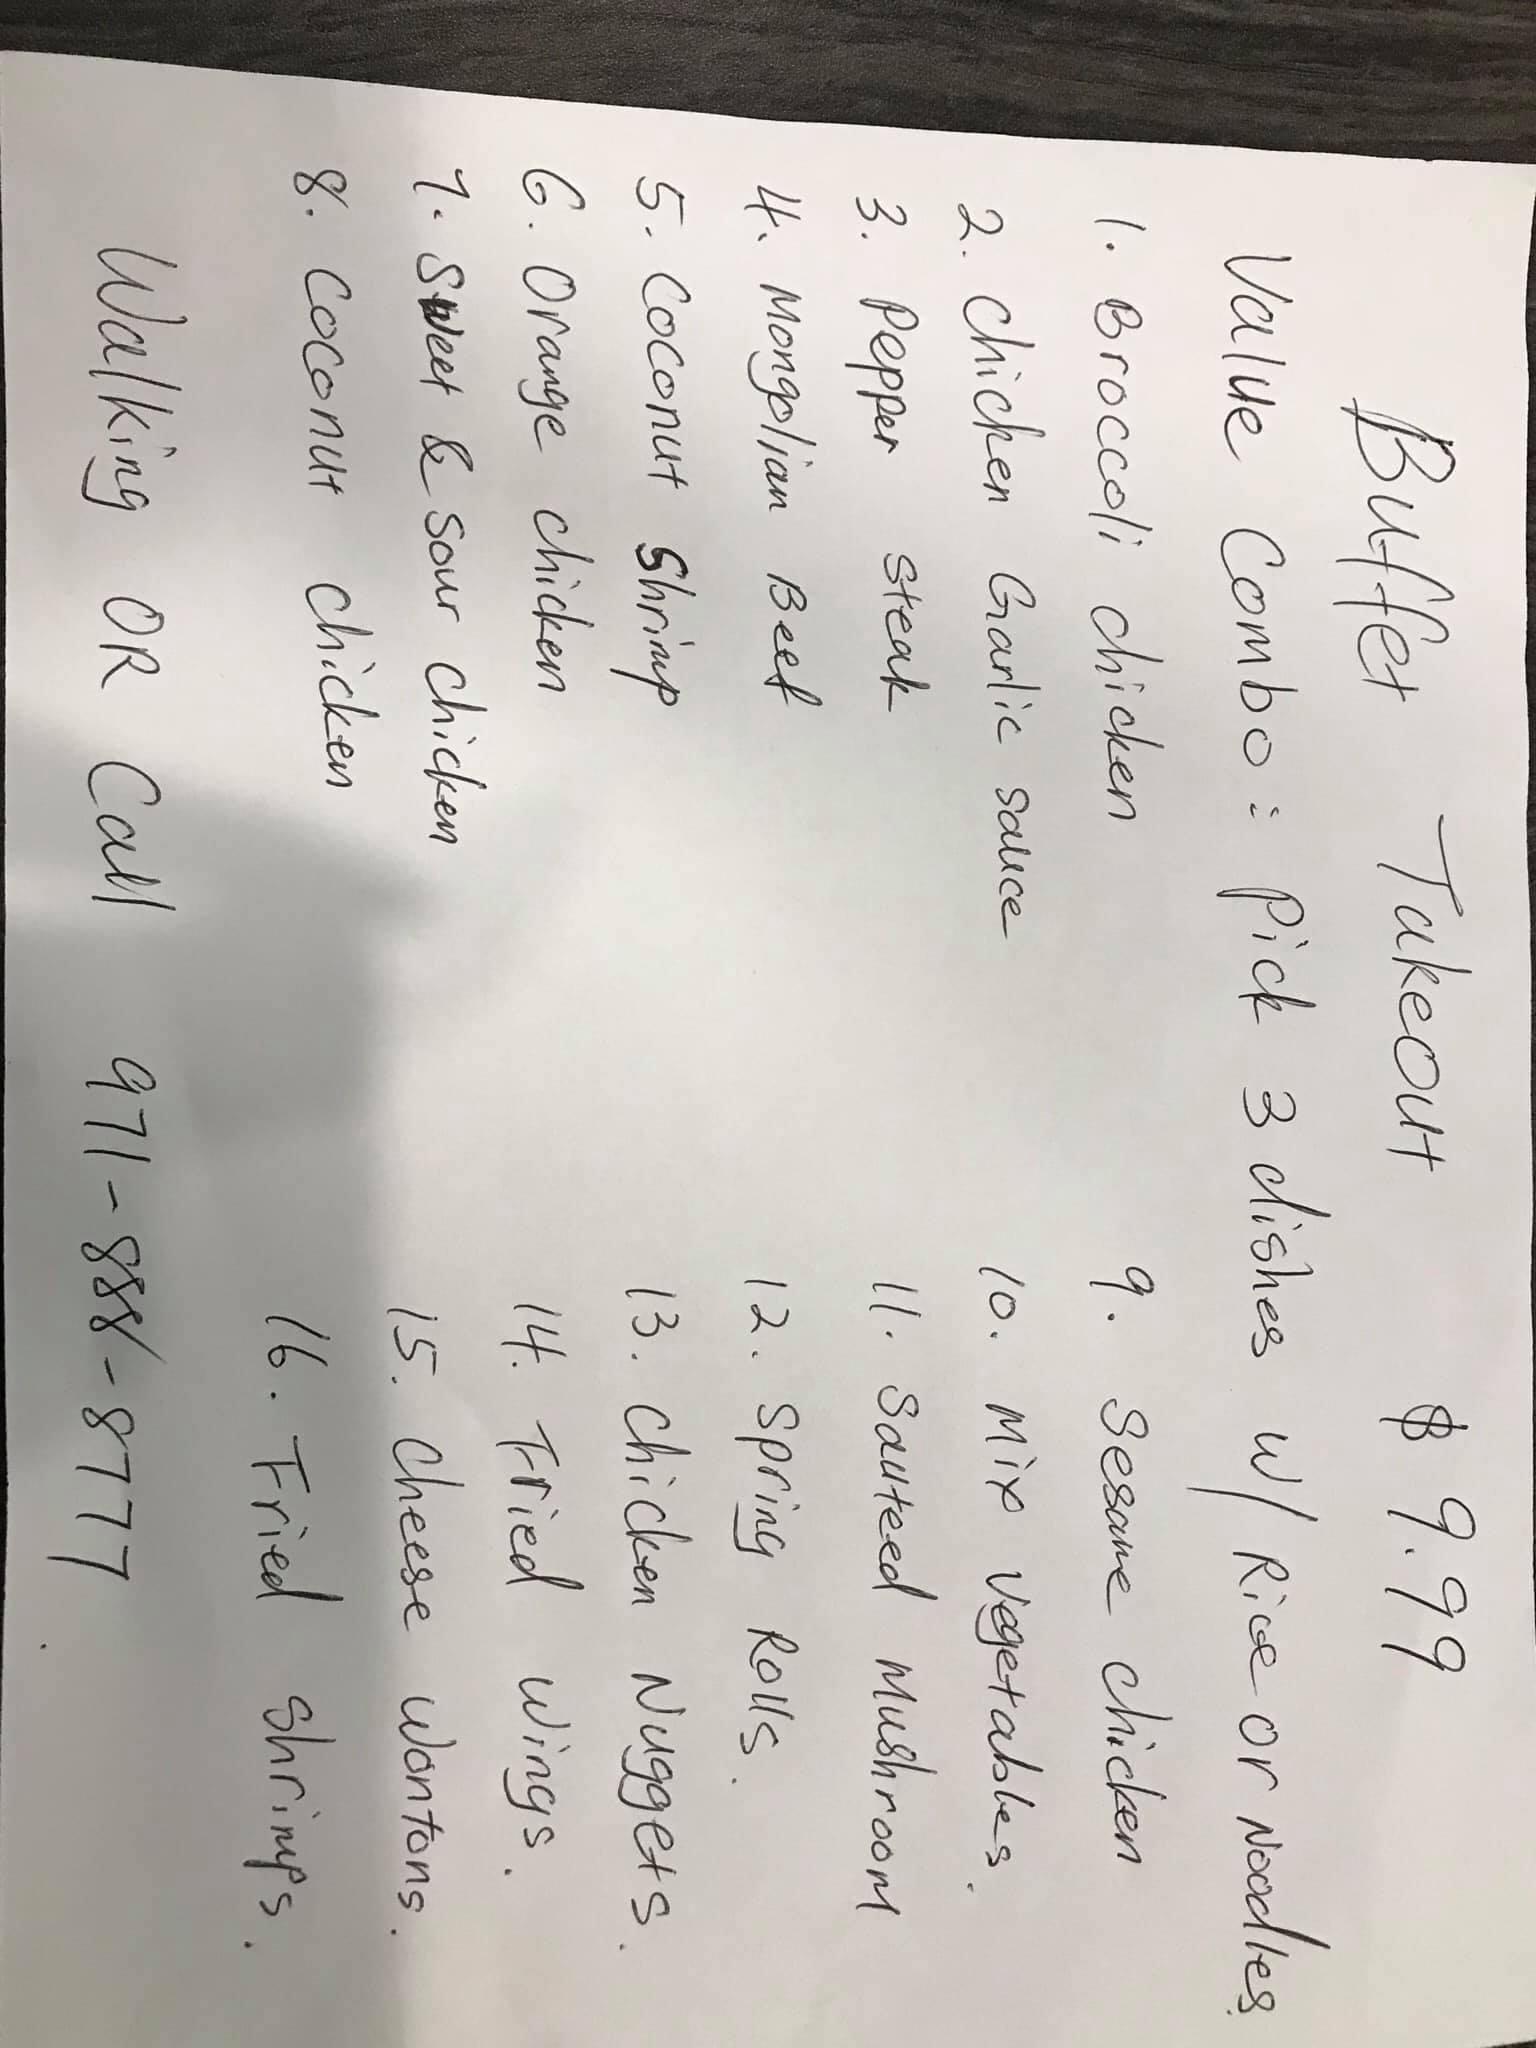 Buffet Takeout $9.99
Value Combo: Pick 3 dishes w/ Rice or Noodles.
1. Broccoli chicken
2. Chicken Garlic sauce
3. Pepper steak
4. Mongolian Beef
5. Coconut Shrimp
6. Orange chicken
7. Sweet & Sour chicken
8. Coconut chicken
9. Sesame chicken
10. Mix Vegetables.
11. Sauteed Mushroom
12. Spring Rolls.
13. Chicken Nuggets.
14. Fried Wings.
15. Cheese Wontons.
16. Fried Shrimps.
Walking OR Call 971-888-8777